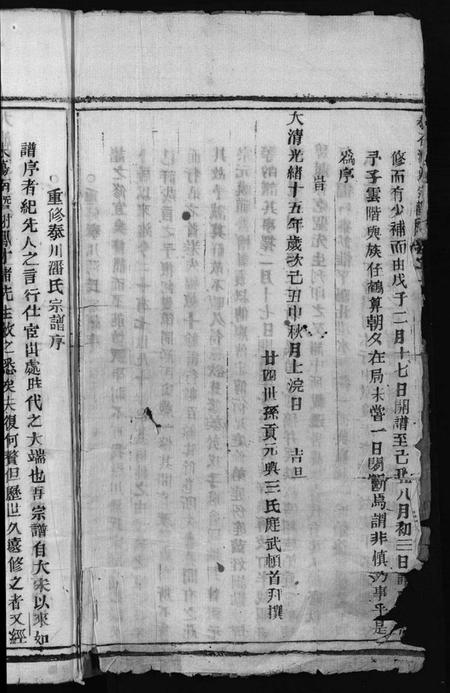 修而有少補而由戊子二月十七日開譜至己丑八月初三日譜
予子雲階與族任鶴算朝夕在局未嘗一日間斷焉謂非慎乃事乎是
為序
旹
大清光緒十五年歲次己丑中秋月上浣日 吉旦
廿四世孫貢元典三氏庭武頓首拜撰
重修泰川潘氏宗譜序
譜序者紀先人之言行仕宦出處時代之大端也吾宗譜自大宋以來如
諸先生敘之悉矣夫復何贅但歷世久遠修之者又經